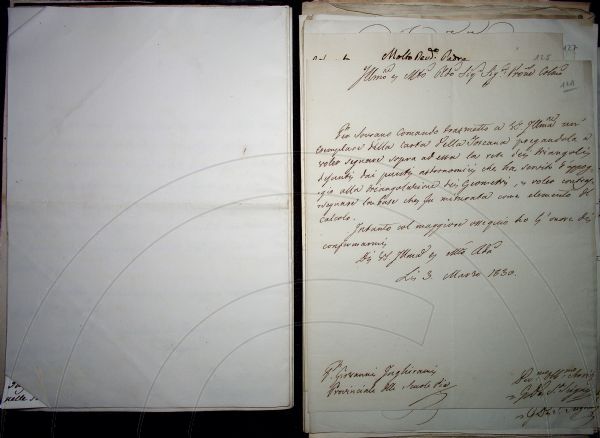 Molto Rev.do Padre
125
127
Illmo e Mto Rdo Sig.r Sig.r Prone Colmo
121
Per Sovrano Comando trasmetto a VS. Illma un
esemplare della Carta della Toscana pregandola a
voler segnare sopra ad essa la rete dei triangoli
dai punti astronomici che ha servito d'appog
gio alla triangolazione dei Geometri, e voler
segnare la base che fu misurata come elemento di
Calcolo.
Intanto col maggiore ossequio ho l'onore di
confermarmi
Di VS. Illma e Mto Rda
Lì 3. Marzo 1830.
P. Giovanni Inghirami
Provinciale delle Scuole Pie